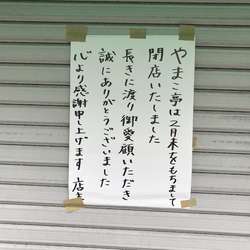 やまこ亭は2月末をもちまして
閉店いたしました
長きに渡り御愛顧いただき
誠にありがとうございました
心より感謝申し上げます 店主